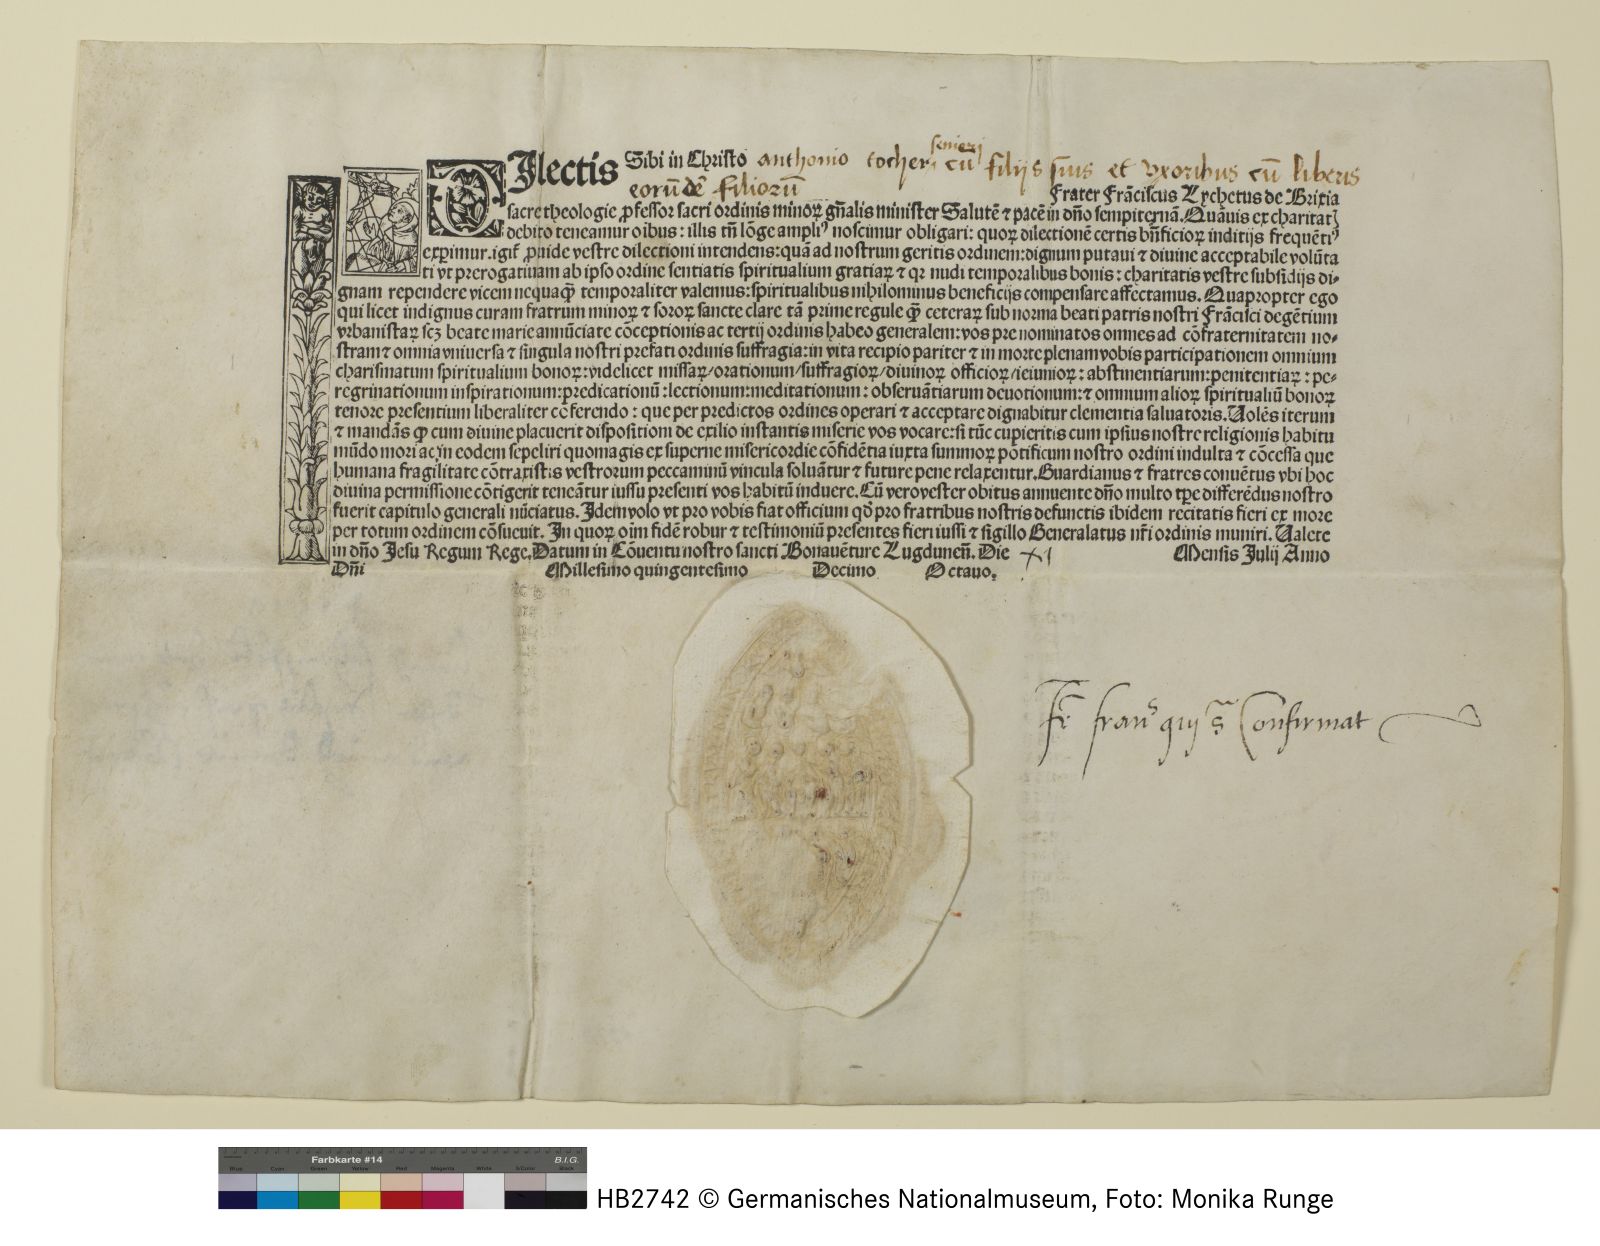 DIlectis Sibi in Christo anthonio tocher seniori cū filijs suis et vxoribus cū liberis
eorūdē filiorū Frater Frāciscus Lychetus de Brixia
sacre theologie ꝓfessor sacri ordinis minoꝝ gn̄alis minister Salutē ⁊ pacē in dn̄o sempiternā. Quāuis ex charitatꝭ
debito teneamur oībus: illis tn̄ lōge ampliꝰ noscimur obligari: quoꝝ dilectionē certis bn̄ficioꝝ inditijs frequētiꝰ
experimur. igit᷑ ꝓinde vestre dilectioni intendens: quā ad nostrum geritis ordinem: dignum putaui ⁊ diuine acceptabile volūta
ti vt prerogatiuam ab ipso ordine sentiatis spiritualium gratiaꝝ ⁊ qꝛ nudi temporalibus bonis: charitatis vestre subsidijs di-
gnam rependere vicem nequaꝙ̄ temporaliter valemus: spiritualibus nihilominus beneficijs compensare affectamus. Quapropter ego
qui licet indignus curam fratrum minoꝝ ⁊ soroꝝ sancte clare tā prime regule ꝙ̄ ceteraꝝ sub norma beati patris nostri Frācisci degētium
vrbanistaꝝ scꝫ beate marie annūciate cōceptionis ac tertij ordinis habeo generalem: vos pre nominatos omnes ad cōfraternitatem no-
stram ⁊ omnia vniuersa ⁊ singula nostri prefati ordinis suffragia: in vita recipio pariter ⁊ in morte plenam vobis participationem omnium
charismatum spiritualium bonoꝝ: videlicet missaꝝ/orationum/suffragioꝝ/diuinoꝝ officioꝝ/ieiunioꝝ: abstinentiarum: penitentiaꝝ: pe-
regrinationum inspirationum: predicationū: lectionum: meditationum: obseruātiarum deuotionum: ⁊ omnium alioꝝ spiritualiū bonoꝝ
tenore presentium liberaliter cōferendo: que per predictos ordines operari ⁊ acceptare dignabitur clementia saluatoris. Uolēs iterum
⁊ mandās ꝙ cum diuine placuerit dispositioni de exilio instantis miserie vos vocare: si tūc cupieritis cum ipsius nostre religionis habitu
mūdo mori ac in eodem sepeliri quo magis ex superne misericordie cōfidētia iuxta summoꝝ pōtificum nostro ordini indulta ⁊ cōcessa que
humana fragilitate cōtraxistis vestrorum peccaminū vincula soluātur ⁊ future pene relaxentur. Guardianus ⁊ fratres conuētus vbi hoc
diuina permissione cōtigerit teneātur iussu presenti vos habitū induere. Cū vero vester obitus annuente dn̄o multo tꝑe differēdus nostro
fuerit capitulo generali nūciatus. Idem volo vt pro vobis fiat officium qd̄ pro fratribus nostris defunctis ibidem recitatis fieri ex more
per totum ordinem cōsueuit. In quoꝝ oīm fidē robur ⁊ testimoniū presentes fieri iussi ⁊ sigillo Generalatus nr̄i ordinis muniri. Ualete
in dn̄o Jesu Regum Rege. Datum in Cōuentu nostro sancti Bonauēture Lugdunen̄. Die XI Mensis Julij Anno
Dn̄i Millesimo quingentesimo Decimo Octauo.
Farbkarte #14
B.I.G.
Blue Cyan Green Yellow Red Magenta White 3/Color Black
HB2742 © Germanisches Nationalmuseum, Foto: Monika Runge